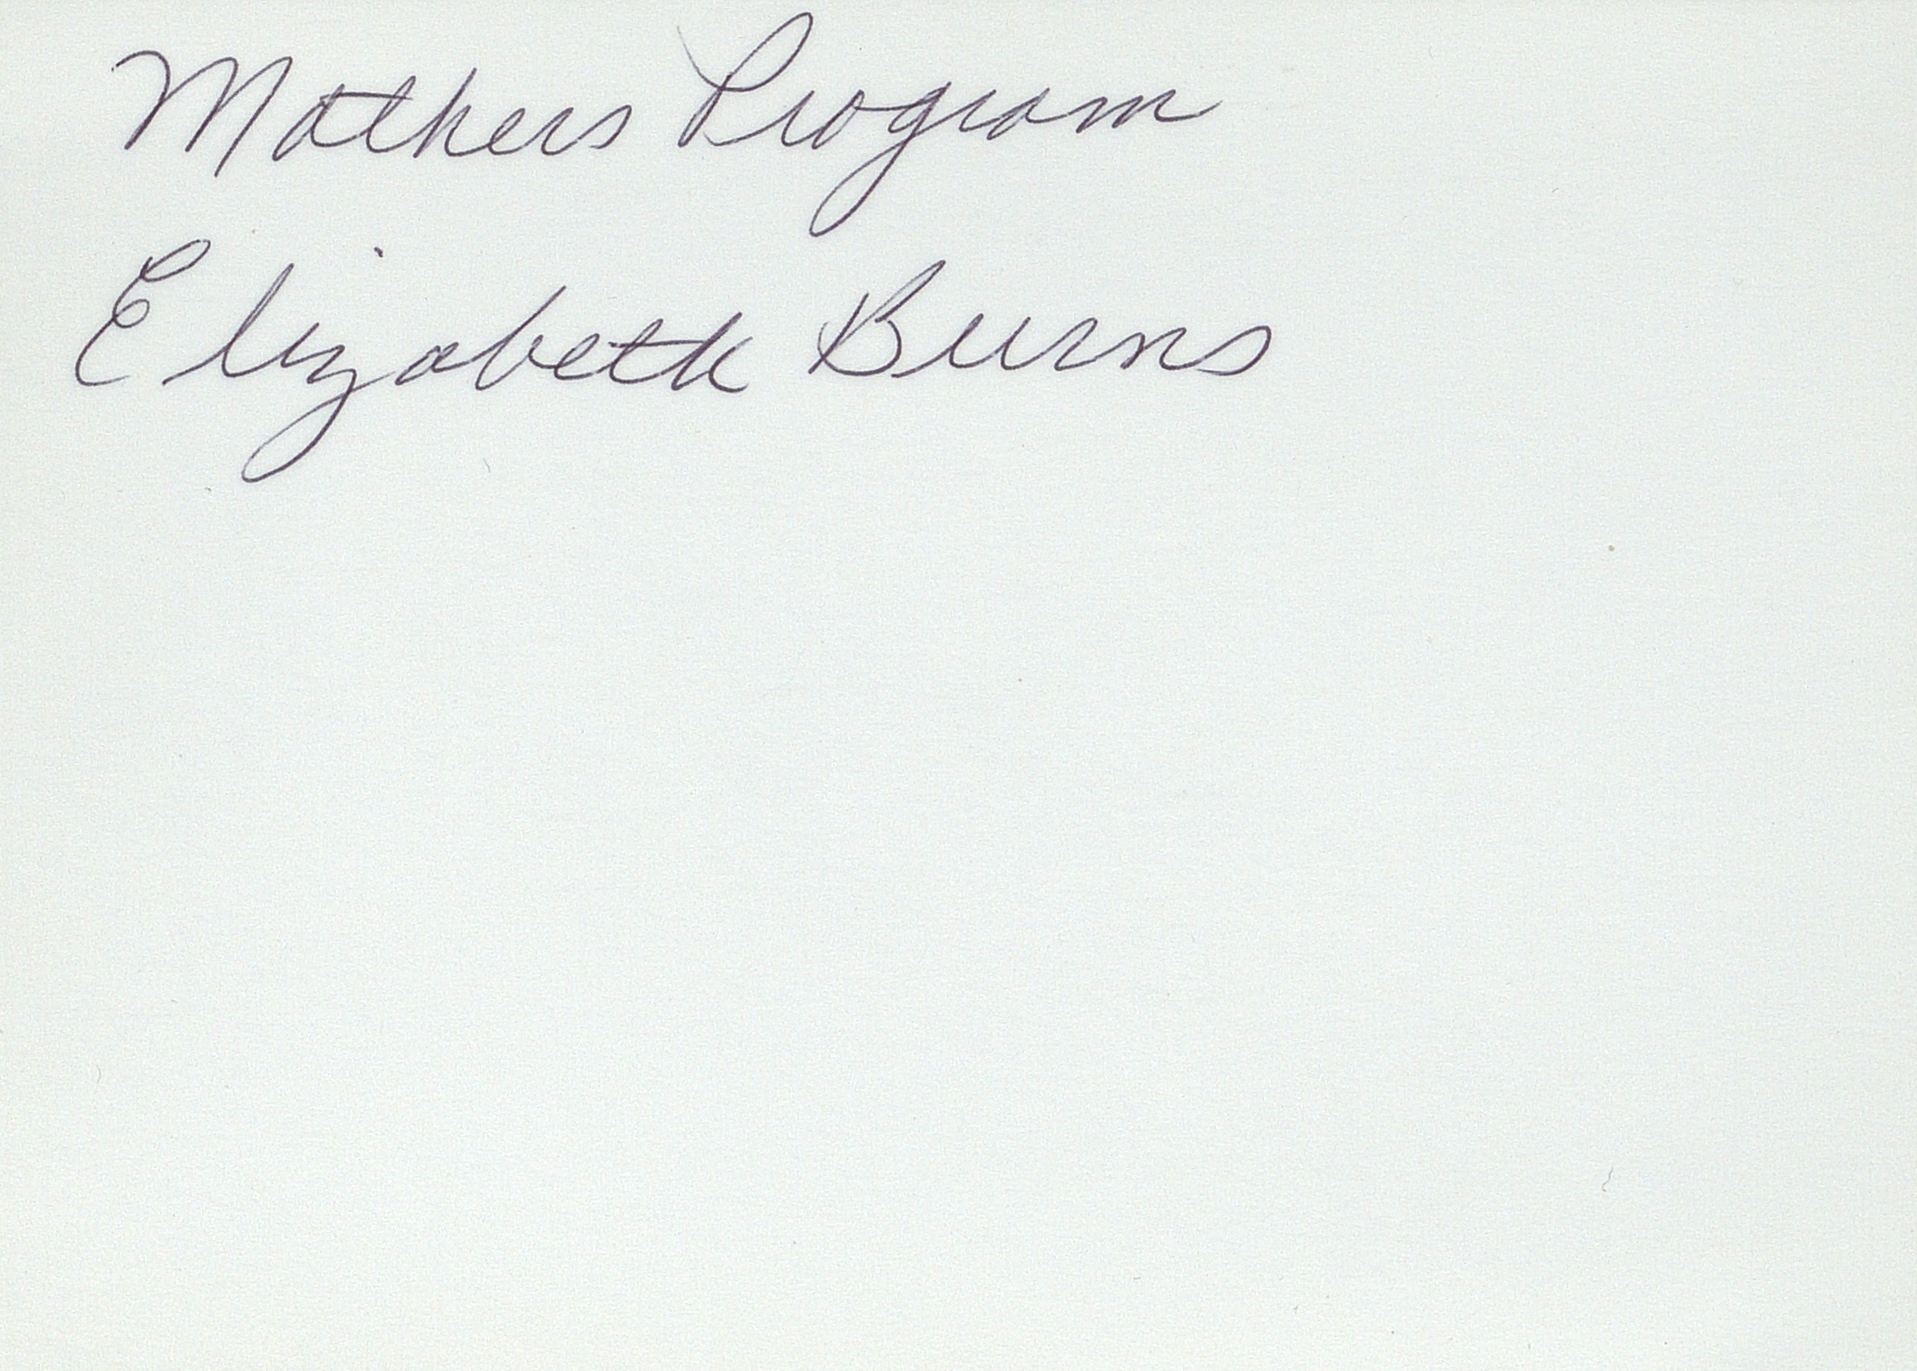 Mothers Program
Elizabeth Burns